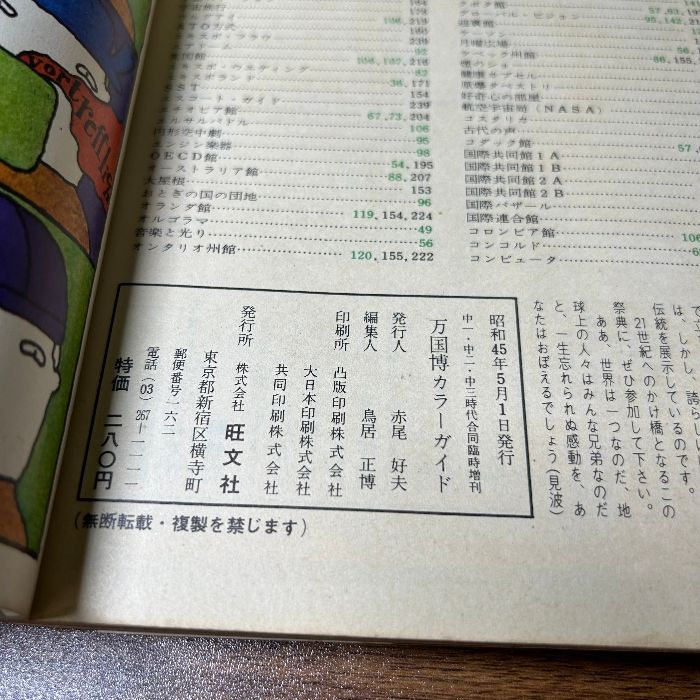 vortrefflich
宙旅行
184
216
106,219
164
178
62
106,107,216
82
36,171
エスコート・ガイド
154
エチオピア館
239
エルサルバドル
67,73,204
円形空中劇
106
エンジン楽器
95
OECD館
98
オーストラリア館
54,195
大屋根
88,207
おとぎの国の団地
153
オランダ館
96
オルゴラマ
119,154,224
音楽と光り
49
オンタリオ州館
56
120,155,222
141
57,63,19
グローバル・ビジョン
迎賓館
95,142,
月曜広場
ケベック州館
健康カプセル
原爆タペストリ
好奇心の部屋
航空宇宙局(NASA)
コスタリカ
古代の声
コダック館
国際共同館1A
国際共同館1B
国際共同館2A
国際共同館2B
国際バザール
国際連合館
コロンビア館
106
コンコルド
コンピュータ
は、しかし、誇らし
伝統を展示しているのです。
21世紀へのかけ橋となるこの
祭典に、ぜひ参加して下さい。
ああ、世界は一つなのだ、地
球上の人々はみんな兄弟なのだ
と、一生忘れられぬ感動を、あ
なたはおぼえるでしょう(見波)
昭和45年5月1日発行
中一・中二・中三時代合同臨時増刊
万国博カラーガイド
発行人 赤尾 好夫
編集人 鳥居 正博
印刷所 凸版印刷株式会社
大日本印刷株式会社
共同印刷株式会社
発行所 株式会社 旺文社
東京都新宿区横寺町
郵便番号一六二
電話(03)267-一一一一
特価 二八〇円
(無断転載・複製を禁じます)